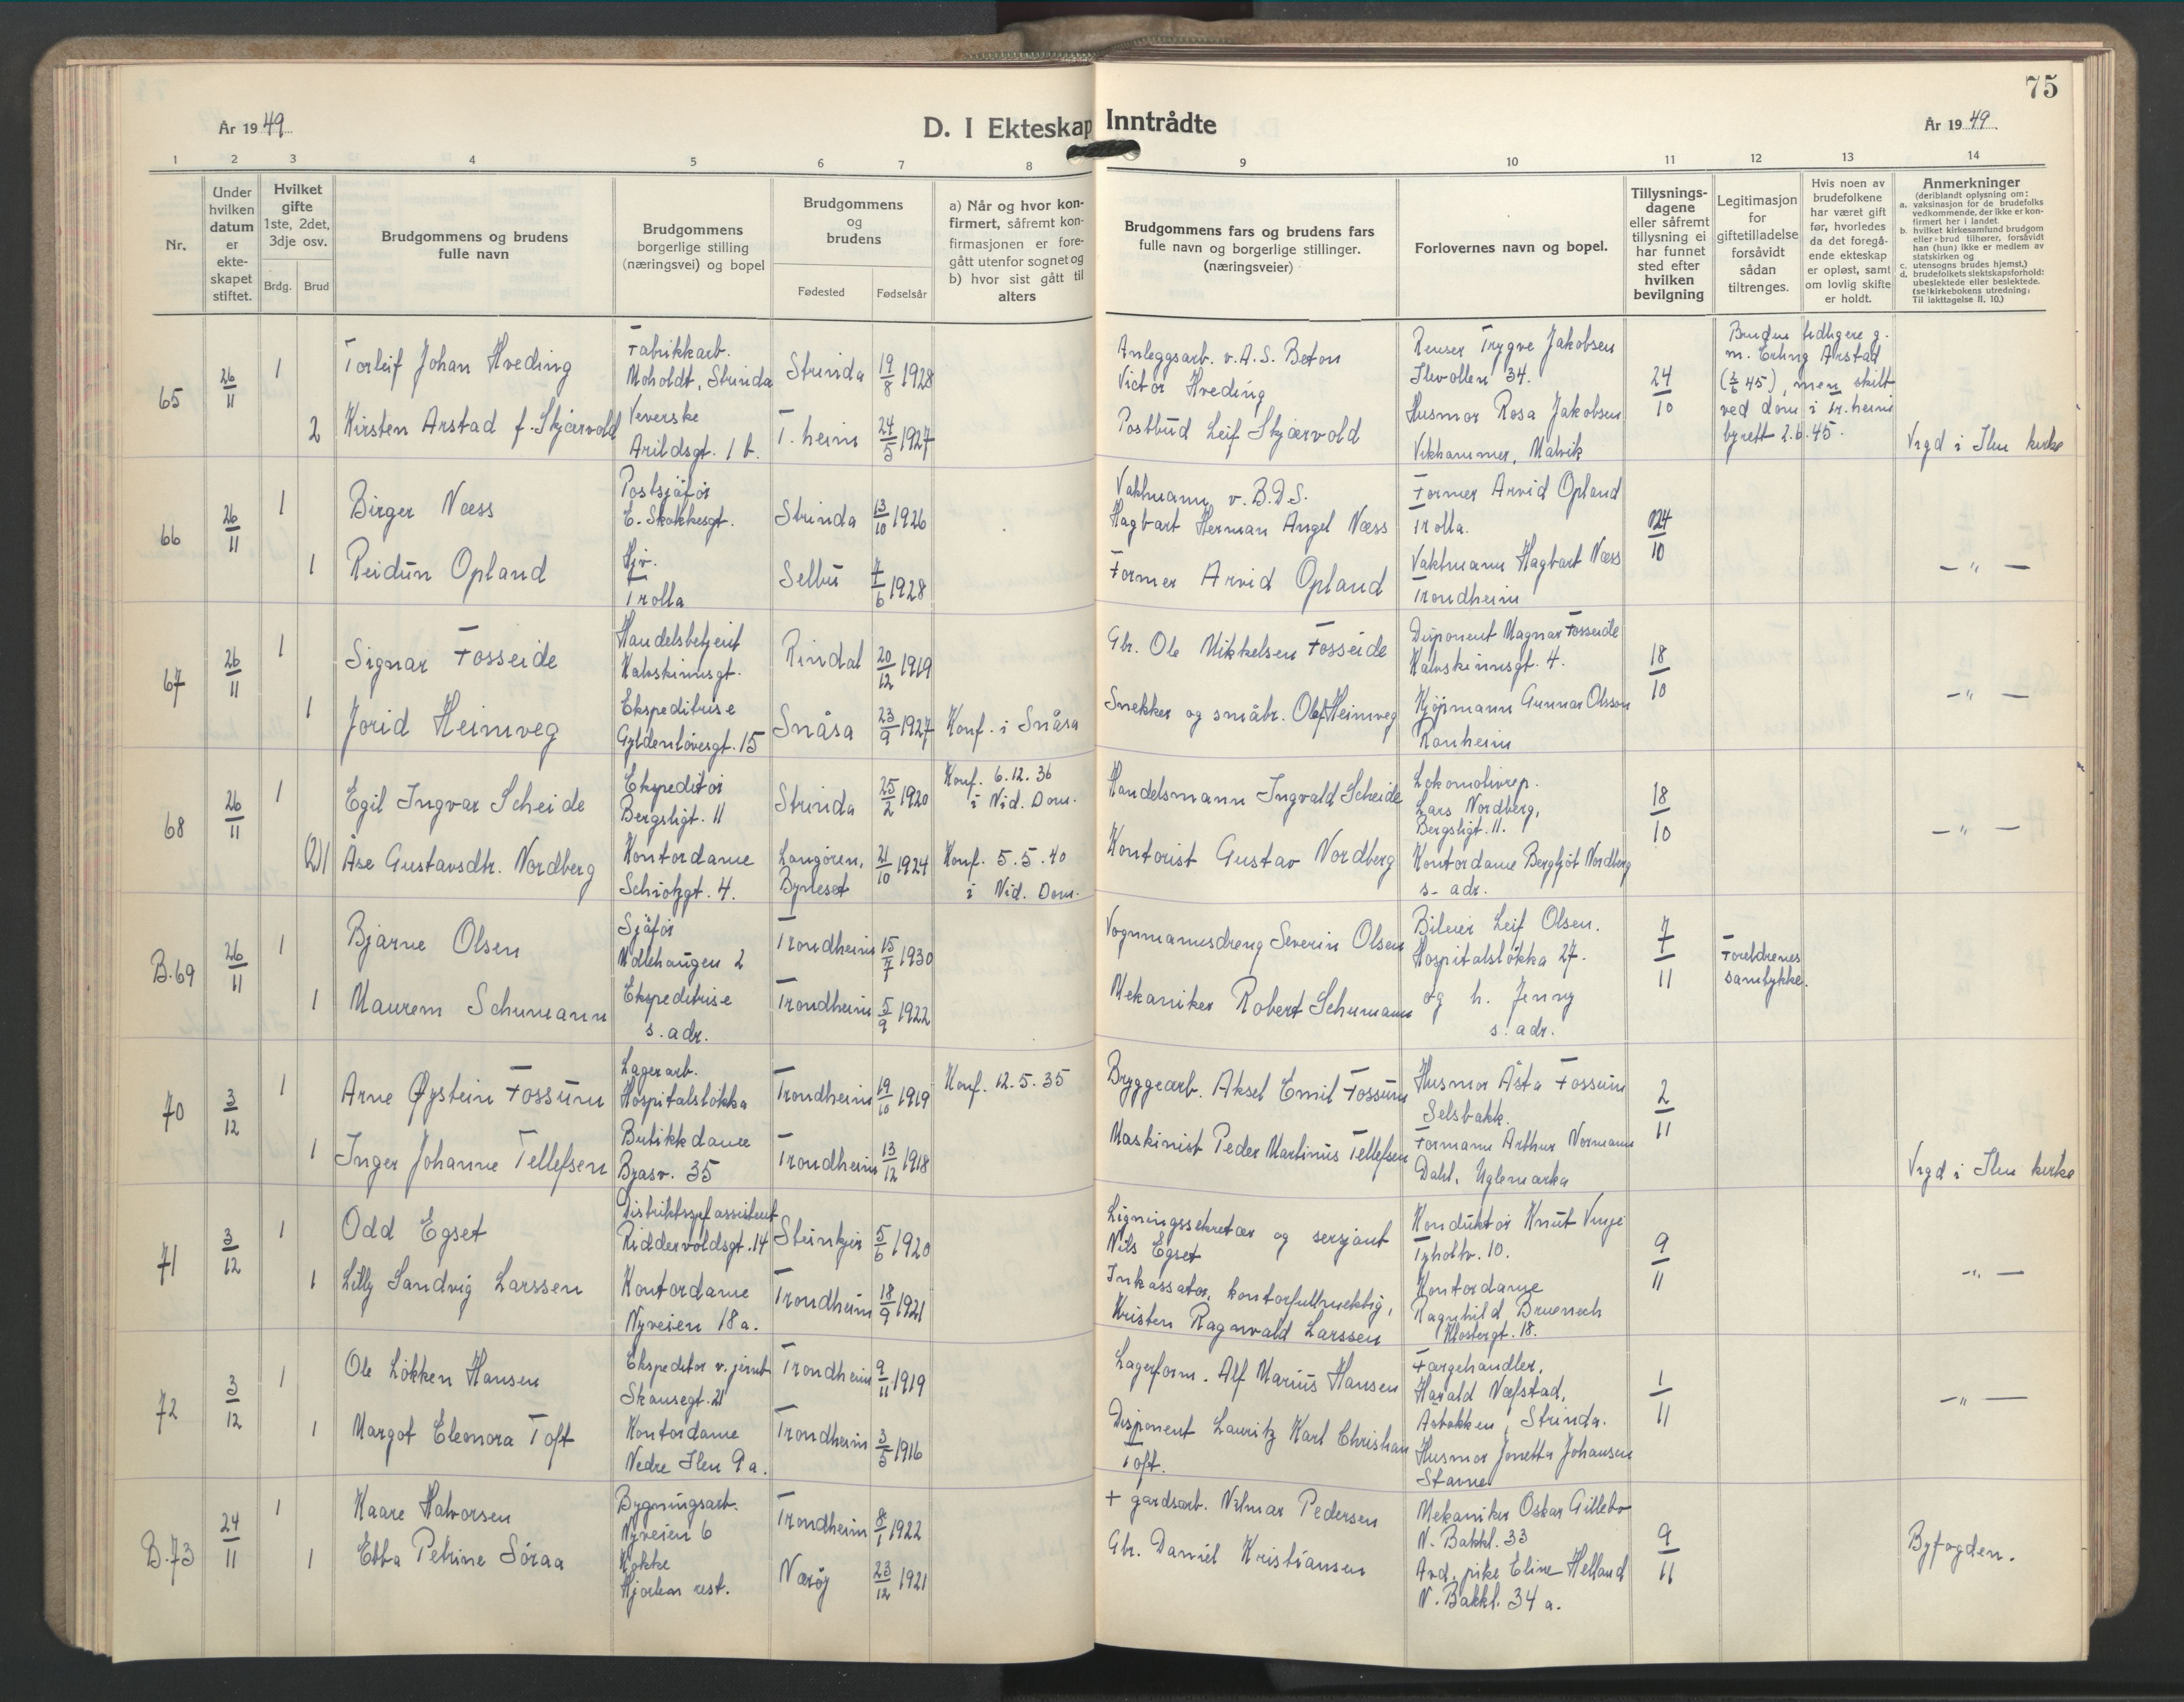 75
År 19 49
D. I Ekteskap Inntrådte
År 19 49
1 2 3 4 5 6 7 8 9 10 11 12 13 14
Nr.
Under hvilken datum er ekte-skapet stiftet.
Hvilket gifte 1ste, 2det, 3dje osv.
Brdg. Brud
Brudgommens og brudens fulle navn
Brudgommens borgerlige stilling (næringsvei) og bopel
Brudgommens og brudens
Fødested Fødselsår
a) Når og hvor kon-firmert, såfremt kon-firmasjonen er fore-gått utenfor sognet og b) hvor sist gått til alters
Brudgommens fars og brudens fars fulle navn og borgerlige stillinger. (næringsveier)
Forlovernes navn og bopel.
Tillysnings-dagene eller såfremt tillysning ei har funnet sted efter hvilken bevilgning
Legitimasjon for giftetilladelse forsåvidt sådan tiltrenges.
Hvis noen av brudefolkene har været gift før, hvorledes da det foregå-ende ekteskap er opløst, samt om lovlig skifte er holdt.
Anmerkninger
(deriblandt oplysning om:
a. vaksinasjon for de brudefolks vedkommende, der ikke er kon-firmert her i landet.
b. hvilket kirkesamfund brudgom eller brud tilhører, forsåvidt han (hun) ikke er medlem av statskirken og
c. utensogns brudes hjemst.)
d. brudefolkets slektskapsforhold: ubeslektede eller beslektede. (se kirkebokens utredning: Til iakttagelse II, 10.)
65 26/11 1 Torleif Johan Hveding
Fabrikkarb.
Moholdt, Strinda
Strinda 19/8 1928
Anleggsarb. v. A.S. Beton
Victor Hveding
Renser Trygve Jakobsen
Ilevollen 34.
24/10
2 Kirsten Arstad f. Skjærvold
Veverske
Arildsgt. 1 b.
T.heim 24/5 1927
Postbud Leif Skjærvold
Husmor Rosa Jakobsen
Vikhammer, Malvik
Bruden tidligere g.
m. Erling Arstad
(2/6 45), men skilt
ved dom i Tr.heim
byrett 2.6.45.
Vigd i Ilen kirke
66 26/11 1 Birger Næss
Postsjåfør
E. Skakkesgt.
Strinda 13/10 1926
Vaktmann v. B.D.S.
Hagbart Herman Angel Næss
Former Arvid Opland
Trolla.
24/10
1 Reidun Opland
Hjv.
Trolla
Selbu 7/6 1928
Former Arvid Opland
Vaktmann Hagbart Næss
Trondheim
— " —
67 26/11 1 Signar Fosseide
Handelsbetjent
Kalvskinnsgt.
Rindal 20/12 1919
Gbr. Ole Mikkelsen Fosseide
Disponent Magnar Fosseide
Kalvskinnsgt. 4.
18/10
1 Jorid Heimveg
Ekspeditrise
Gyldenløvesgt. 15
Snåsa 23/9 1927
Konf. i Snåsa
Snekker og småbr. Olaf Heimveg
Kjøpmann Gunnar Olsson
Ranheim
— " —
68 26/11 1 Egil Ingvar Scheide
Ekspeditør
Bergsligt. 11
Strinda 25/2 1920
Konf. 6.12.36
i Nid. Dom.
Handelsmann Ingvald Scheide
Lokomotivrep.
Lars Nordberg,
Bergsligt. 11.
18/10
(2) 1 Åse Gustavsdtr. Nordberg
Kontordame
Schiøtzgt. 4.
Langøren,
Byneset
21/10 1924
Konf. 5.5.40
i Nid. Dom.
Kontorist Gustav Nordberg
Kontordame Bergljot Nordberg
s. adr.
— " —
B.69 26/11 1 Bjarne Olsen
Sjåfør
Mdlehaugen 2
Trondheim 15/7 1930
Vognmannsdreng Severin Olsen
Bileier Leif Olsen.
Hospitalsløkka 27.
7/11
Foreldrenes
samtykke.
1 Maurem Schumann
Ekspeditrise
s. adr.
Trondheim 5/9 1922
Mekaniker Robert Schumann
og h. Jenny
s. adr.
70 3/12 1 Arne Øystein Fossum
Lagerarb.
Hospitalsløkka
Trondheim 19/10 1919
Konf. 12.5.35
Bryggearb. Aksel Emil Fossum
Husmor Åsta Fossum
Selsbakk.
2/11
1 Inger Johanne Tellefsen
Butikkdame
Byåsv. 35
Trondheim 13/12 1918
Maskinist Peder Martinus Tellefsen
Formann Arthur Normann
Dahl, Uglemarka
Vigd i Ilen kirke
71 3/12 1 Odd Egset
Distriktssjefassistent
Riddervoldsgt. 14
Steinkjer 5/6 1920
Ligningssekretær og sersjant
Nils Egset
Konduktør Knut Vinje
Tyholtv. 10.
9/11
1 Lilly Sandvig Larssen
Kontordame
Nyveien 18 a.
Trondheim 18/9 1921
Inkassator, kontorfullmektig,
Kristen Ragnvald Larssen
Kontordame
Ragnhild Bruenech
Klostergt. 18.
— " —
72 3/12 1 Ole Løkken Hansen
Ekspeditør v. jernb.
Skansegt. 21
Trondheim 9/11 1919
Lagerform. Alf Marius Hansen
Fargehandler,
Harald Næfstad,
Åsbakken, Strinda.
1/11
1 Margot Eleonora Toft
Kontordame
Nedre Ilen 9 a.
Trondheim 3/5 1916
Disponent Lauritz Karl Christian
Toft.
Husmor Jonetta Johansen
Stavne
— " —
B.73 24/11 1 Kaare Halvorsen
Bygningsarb.
Nyveien 6
Trondheim 8/1 1922
+ gardsarb. Vilmar Pedersen
Mekaniker Oskar Gillebo
N. Bakkl. 33
9/11
1 Ebba Petrine Søraa
Kokke
Hjorten rest.
Nærøy 23/12 1921
Gbr. Daniel Kristiansen
Arb. pike Eline Helland
N. Bakkl. 34 a.
Byfogden.